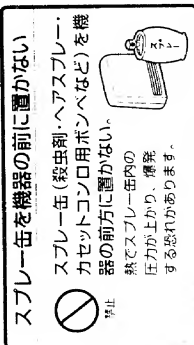 スプレー缶を機器の前に置かない
スプレー缶(殺虫剤・ヘアスプレー・
カセットコンロ用ボンベなど)を機
器の前方に置かない。
禁止
熱でスプレー缶内の
圧力が上がり、爆発
する恐れがあります。
スプレー